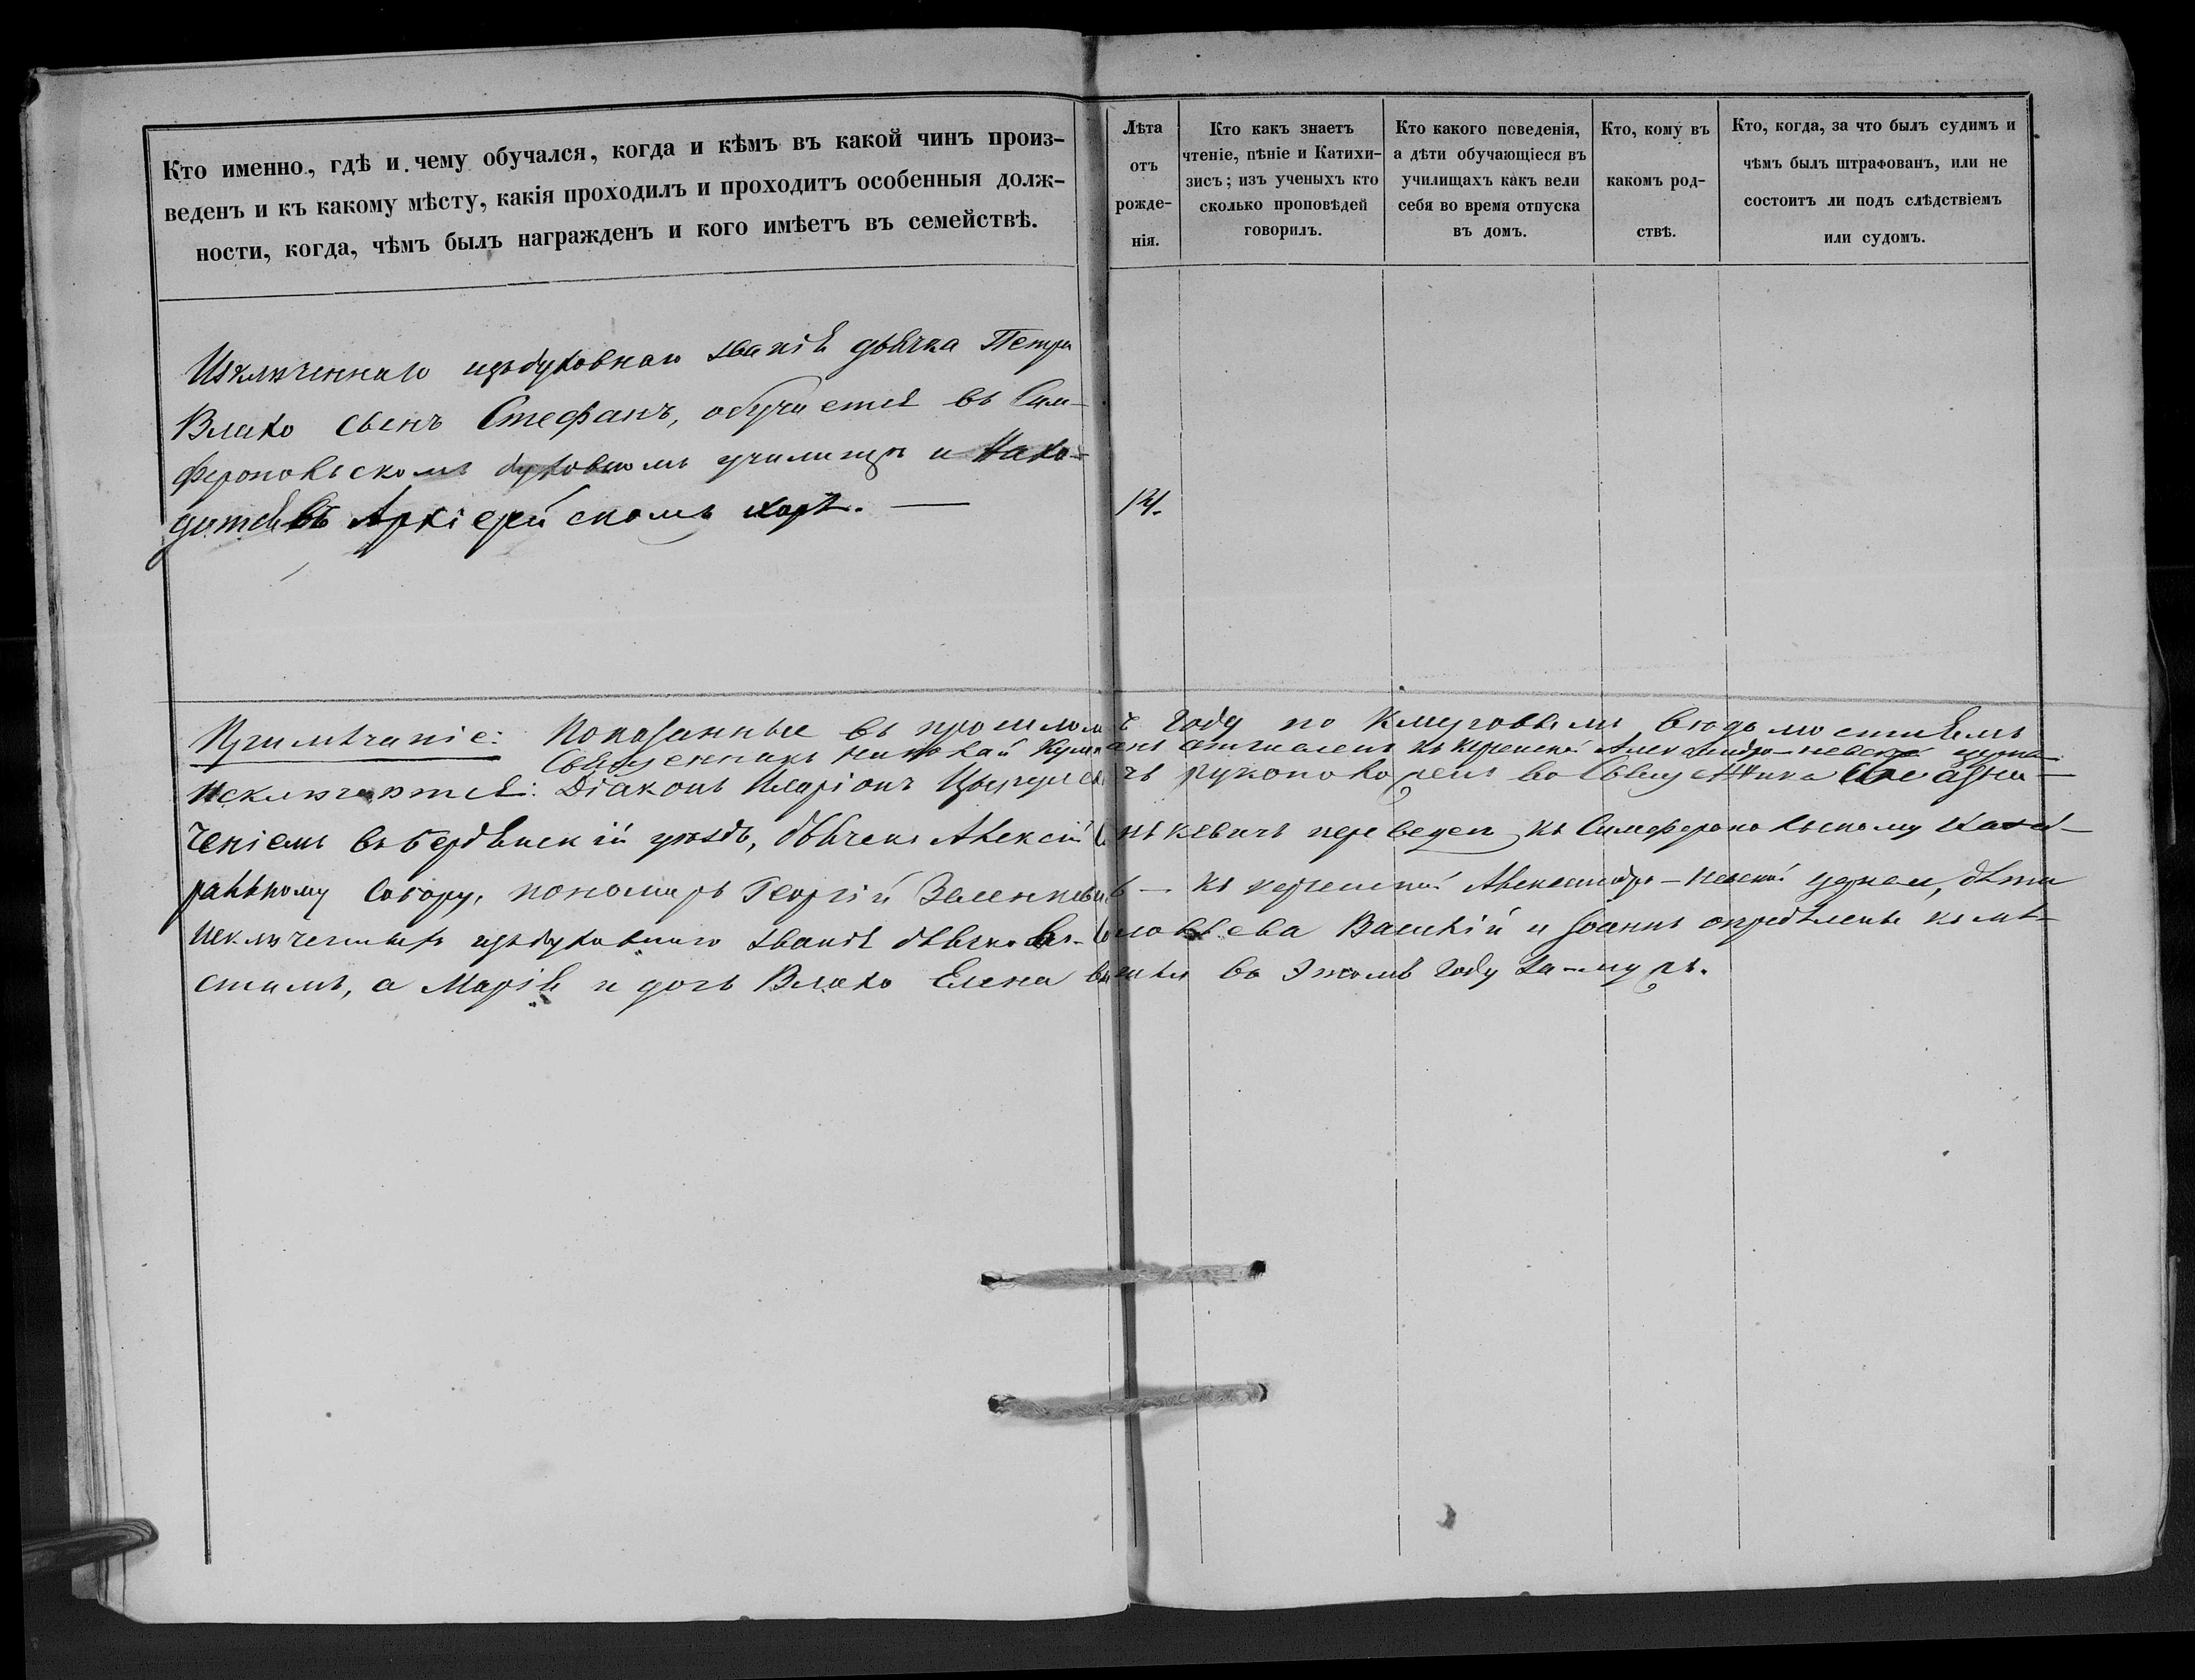 Кто именно, гдѣ и чему обучался, когда и кѣмъ въ какой чинъ произ-
веденъ и къ какому мѣсту, какія проходилъ и проходитъ особенныя долж-
ности, когда, чѣмъ былъ награжденъ и кого имѣетъ въ семействѣ.
Лѣта
отъ
рожде-
нія.
Кто какъ знаетъ
чтеніе, пѣніе и Катихи-
зисъ; изъ ученыхъ кто
сколько проповѣдей
говорилъ.
Кто какого поведенія,
а дѣти обучающіеся въ
училищахъ какъ вели
себя во время отпуска
въ домъ.
Кто, кому въ
какомъ род-
ствѣ.
Кто, когда, за что былъ судимъ и
чѣмъ былъ штрафованъ, или не
состоитъ ли подъ слѣдствіемъ
или судомъ.
Изключеннаго изъ духовнаго званія дьячка Петра
Влахо сынъ Стефанъ, обучается въ Сим-
феропольскомъ духовномъ училищѣ и нахо-
дится въ Архіерейскомъ хорѣ. —
14.
Примѣчаніе: Показанные въ прошломъ году по клировымъ вѣдомостямъ
Священникъ Николай отчисленъ къ Керченской Александро-Невской церкви
исключаются: Діаконъ Иларіонъ рукоположенъ во Священника съ назна-
ченіемъ въ Бердянскій уѣздъ, дьячекъ Алексій переведенъ къ Симферопольскому Каѳед-
ральному Собору, пономарь Георгій Зеленкевичъ — къ Керченской Александро-Невской церкви, дѣти
исключеннаго изъ духовнаго званія дьячка Соловьева Василій и Іоаннъ опредѣлены къ мѣ-
стамъ, а Марія и дочь Влахо Елена вышли въ этомъ году за-мужъ.